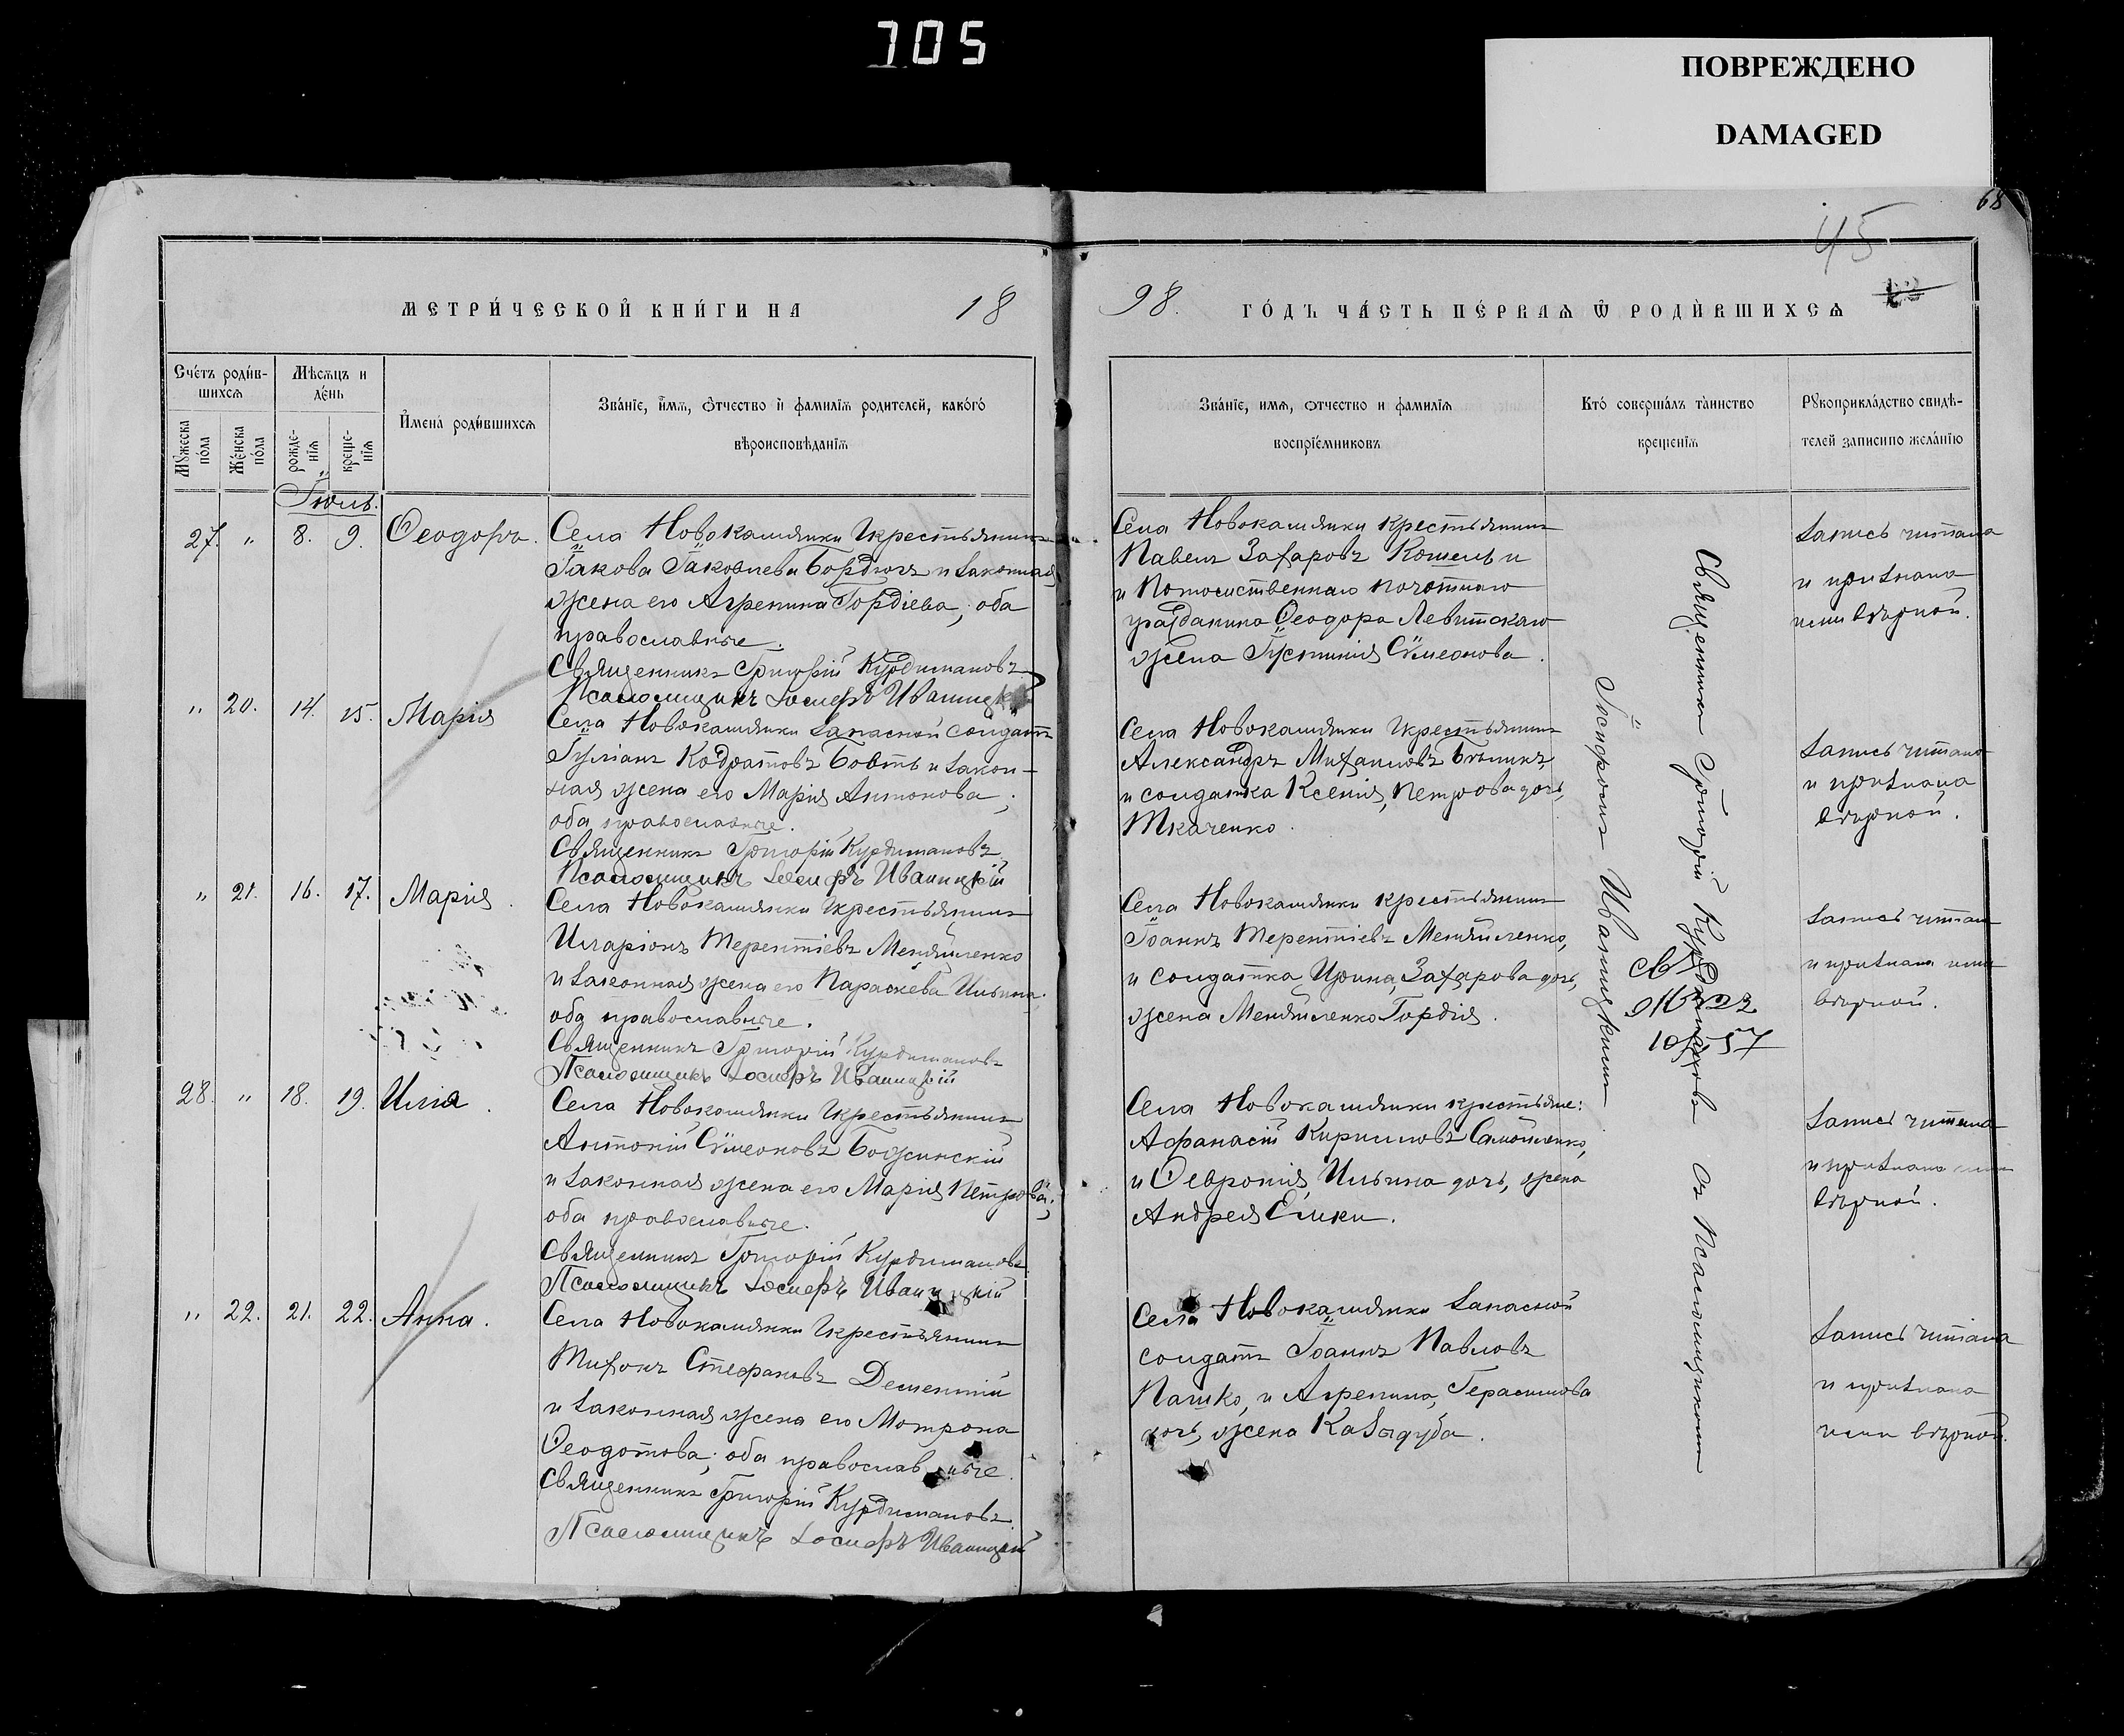 705
ПОВРЕЖДЕНО
DAMAGED
68
45
МЕТРИ́ЧЕСКОЙ КНИ́ГИ НА 18
98. ГО́ДЪ ЧА́СТЬ ПЕ́РВАѦ Ѿ РОДИ́ВШИХСѦ
Сче́тъ роди́в-
шихсѧ
Мѣсѧцъ и
де́нь
Мꙋжеска
по́ла
Же́нска
по́ла
рожде-
нїѧ
креще-
нїѧ
И҆мена̀ роди́вшихсѧ
Зва́нїе, и҆́мѧ, ѻ҆́тчество и҆ фами́лїѧ родителей, како́гѡ
вѣроисповѣ́данїѧ
Зва́нїе, имѧ, ѻтчество и фамилїѧ
воспрїе́мниковъ
Кто́ соверша́лъ та̀инство
креще́нїѧ
Рꙋкоприкла́дство свидѣ-
телей записи по жела́нїю
Іюль.
27. " 8. 9. Ѳеодоръ.
Села Новокамянки крестьянинъ
Іаковъ Іаковлевъ Бордюгъ и законная
жена его Агрепина Гордіева, оба
православные.
Священникъ Григорій Курдимановъ
Псаломщикъ Іосифъ Иваницкій
Села Новокамянки крестьянинъ
Павелъ Захаровъ Кошель и
и Потомственнаго почотнаго
гражданина Ѳеодора Левитскаго
жена Іустинія Сѵмеонова.
Запись читана
и признана
ими вѣрной.
" 20. 14. 15. Марія
Села Новокамянки запасной солдатъ
Іуліанъ Кодратовъ Бовтъ и закон-
ная жена его Марія Антонова,
оба православные.
Священникъ Григорій Курдимановъ
Псаломщикъ Іосифъ Иваницкій
Села Новокамянки крестьянинъ
Александръ Михаиловъ Бѣликъ,
и солдатка Ксенія, Петрова дочь,
Ткаченко.
Запись читана
и признана
вѣрной.
" 21. 16. 17. Марія.
Села Новокамянки крестьянинъ
Иларіонъ Терентіевъ Меняйленко
и законная жена его Параскева Ильина.
оба православные.
Священникъ Григорій Курдимановъ
Псаломщикъ Іосифъ Иваницкій
Села Новокамянки крестьянинъ
Іоаннъ Терентіевъ Меняйленко,
и солдатка Ирина, Захарова дочь,
жена Меняйленко Гордія.
Запись читана
и признана ими
вѣрной.
28. " 18. 19. Илія.
Села Новокамянки крестьянинъ
Антоній Сѵмеоновъ Божинскій
и законная жена его Марія Петрова;
оба православные.
Священникъ Григорій Курдимановъ
Псаломщикъ Іосифъ Иваницкій
Села Новокамянки крестьяне:
Афанасій Кирилловъ Самойленко,
и Ѳевронія, Ильина дочь, жена
Андрея Елики.
Запись читана
и признана ими
вѣрной.
" 22. 21. 22. Анна.
Села Новокамянки крестьянинъ
Тихонъ Стефановъ Дементій
и законная жена его Мотрона
Ѳеодотова; оба православные.
Священникъ Григорій Курдимановъ.
Псаломщикъ Іосифъ Иваницкій
Села Новокамянки запасной
солдатъ Іоаннъ Павловъ
Пашко, и Агрепина, Герасимова
дочь, жена Кабадуба.
Запись читана
и признана
ими вѣрной.
Священникъ Григорій Курдимановъ съ Псаломщикомъ
Іосифомъ Иваницкимъ